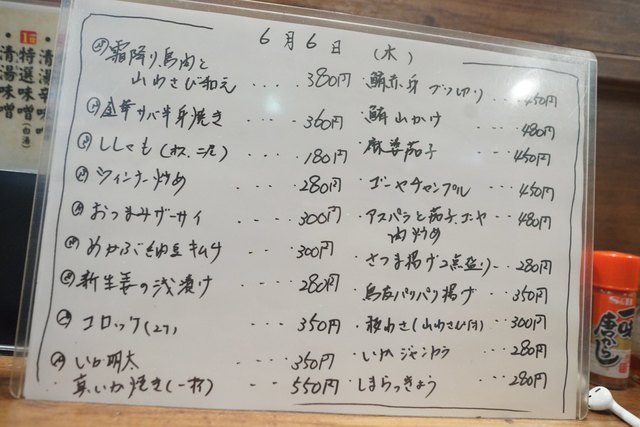 6月6日 (水)
霜降り鳥肉と
山わさび和え ････ 380円
金華サバ半身焼き ････ 360円
ししゃも(オス、二尾) ････ 180円
ウィンナー炒め ････ 280円
おつまみザーサイ ････ 300円
めかぶ納豆キムチ ････ 300円
新生姜の浅漬け ････ 280円
コロッケ(2ケ) ････ 350円
いか明太 ････ 350円
真いか焼き(一杯) ･･･ 550円
･鮪赤身ブツ切り ･･･ 450円
･鮪山かけ ･･･ 480円
･麻婆茄子 ･･･ 450円
･ゴーヤチャンプル ･･･ 450円
･アスパラと茄子、ゴーヤ
肉炒め ･･･ 480円
･さつま揚げ(2点盛り) ･･･ 280円
･鳥皮パリパリ揚げ ･･･ 350円
･板わさ(山わさび付) ･･･ 300円
･いかジャンカラ ･･･ 280円
･しまらっきょう ･･･ 280円
特選味噌
清湯味噌
S&B
一味
唐からし